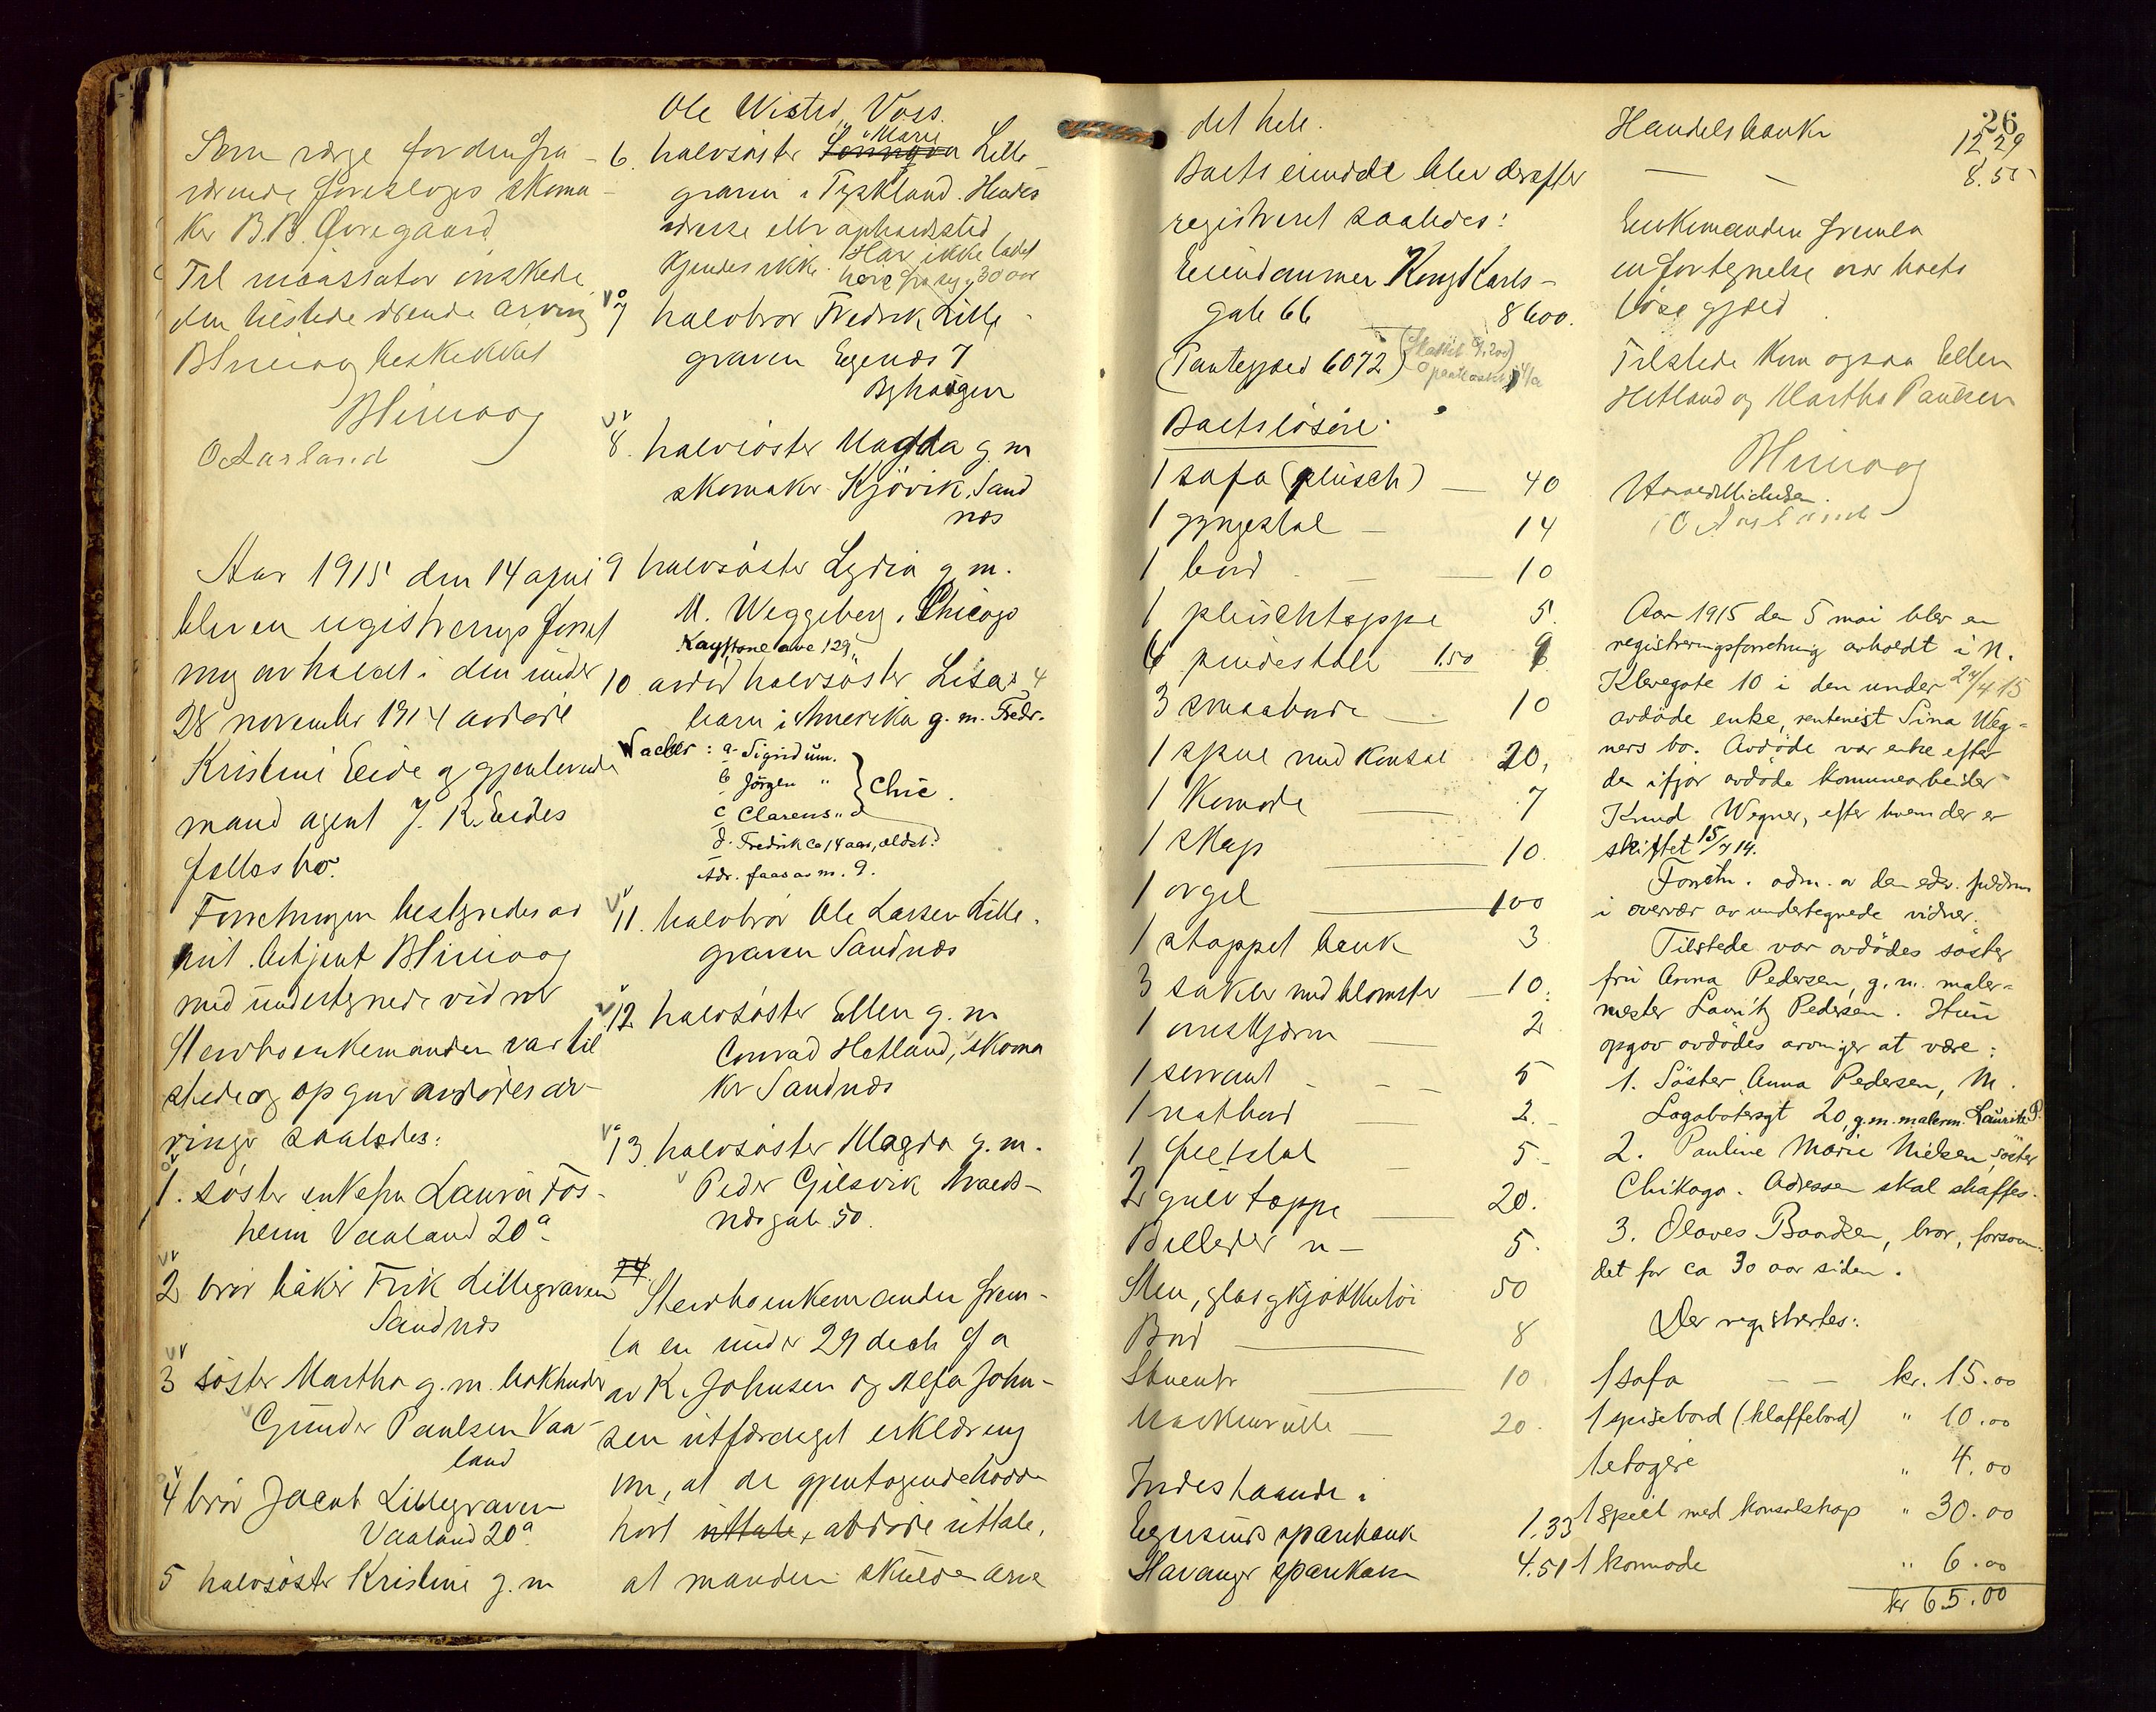 Som værge for den fra-
værende foresloges skoma-
ker B.B. Øvregaard
Til incassator önskede
den tilstede værende arving
BHinoog beskikket
BHinoog
O Aarland
Aar 1915 den 14 april
blev en registreringsforret
ning avholdt i den under
28 november 1914 avdöde
Kristine Eide og gjenlevende
mand agent J. K. Eides
fællesbo.
Forretningen bestyredes av
mit. betjent BHinoog
med undertegnede vidner
Stervboenkemanden var til
stede og opgav avdödes ar-
vinger saaledes:
1. söster enkefru Laura Fos-
heim Vaaland 20a
2 bror baker Erik Lillegraven
Sandnes
3 söster Martha g.m. bokholder
Gunder Paulsen Vaa-
land
4 bror Jacob Lillegraven
Vaaland 20a
5 halvsöster Kristine g.m
Ole Wisted, Voss.
Marie
6. halvsöster Lille-
graven i Tyskland. Hendes
adresse eller opholdssted
kjendes ikke. Har ikke ladet
höre fra sig i 30 aar
7 halvbror Fredrik Lille-
graven Egenæs 7
Byhaugen
8. halvsöster Magda g.m
skomaker Kjövik, Sand
nes
9 halvsöster Lydia g.m.
M. Weggeberg, Chicago
Kaystone ave 129
10 avdöd halvsöster Lisas 4
barn i Amerika g.m. Fredr.
Wacker: a. Sigrid um.
b Jörgen "
Chic.
c Clarens "
d. Fredrik ca 14 aar, ældst.
Adr. faaes av nr. 9.
11. halvbror Ole Larsen Lille-
graven Sandnes
12 halvsöster Ellen g.m
Conrad Hetland, skoma
ker Sandnes
13. halvsöster Magda g.m.
Peder Gilsvik Hvaleds-
næsgate 50.
14.
Stervboenkemanden frem-
la en under 29 decbr f a
av K. Johnsen og Alfa John-
sen utfærdiget erklæring
om, at de gjentagende hadde
hört uttale, avdöde uttale,
at manden skulde arve
det hele.
Boets eiendele blev derefter
registreret saaledes:
Eiendommen Kong Karls-
gate 66 — 8600.
(Pantegjæld 6072)
Boets lösöre.
1 sofa (plüsch) — 40
1 gyngestol — 14
1 bord — 10
1 plüschteppe 5.
6 pindestole 1.50 9
3 smaaborde — 10
1 speil med konsol 20,
1 Komode — 7
1 Skap — 10.
1 orgel — 100
1 stoppet bænk 3
3 sökler med blomster — 10.
1 ovnskjerm — 2
1 servant — 5
1 natbord — 2.
1 feltstol — 5
2 gulvtepper — 20.
Billeder m — 5.
Sten, glas og kjökkentöi 50
Bord — 8
Stuentr — 10
Maskinrulle — 20.
Indestaaende i
Egersunds sparebank 1.33
Stavanger sparekasse 4.51
26
Handelsbanken 12 29
— — 8.55
Enkemanden fremla
en fortegnelse over boets
löse gjæld
Tilstede kom ogsaa Ellen
Hetland og Martha Paulsen
BHinoog
O Aarland
Aar 1915 den 5 mai blev en
registreringsforretning avholdt i N.
Klevegate 10 i den under 24/4 15
avdöde enke, rentenist Sina Weg-
ners bo. Avdöde var enke efter
den ifjor avdöde kommunearbeider
Knud Wegner, efter hvem der er
skiftet 15/7 14.
Forretn. adm. av den edsv. fuldm
i overvær av undertegnede vidner.
Tilstede var avdödes söster
fru Anna Pedersen, g.m. maler-
mester Lauritz Pedersen. Hun
opgav avdödes arvinger at være:
1. Söster Anna Pedersen, M.
Lagabötersgt 20, g.m. malerm. Lauritz P.
2. Pauline Marie Nielsen, söster
Chikago. Adressen skal skaffes.
3. Olaves Baardsen, bror, forsvun-
det for ca 30 aar siden.
Der registrertes:
1 sofa — — kr. 15.00
1 spisebord (klaffebord) " 10.00
1 etagere " 4.00
1 speil med konsolskap " 30.00
1 kommode " 6.00
kr 65.00